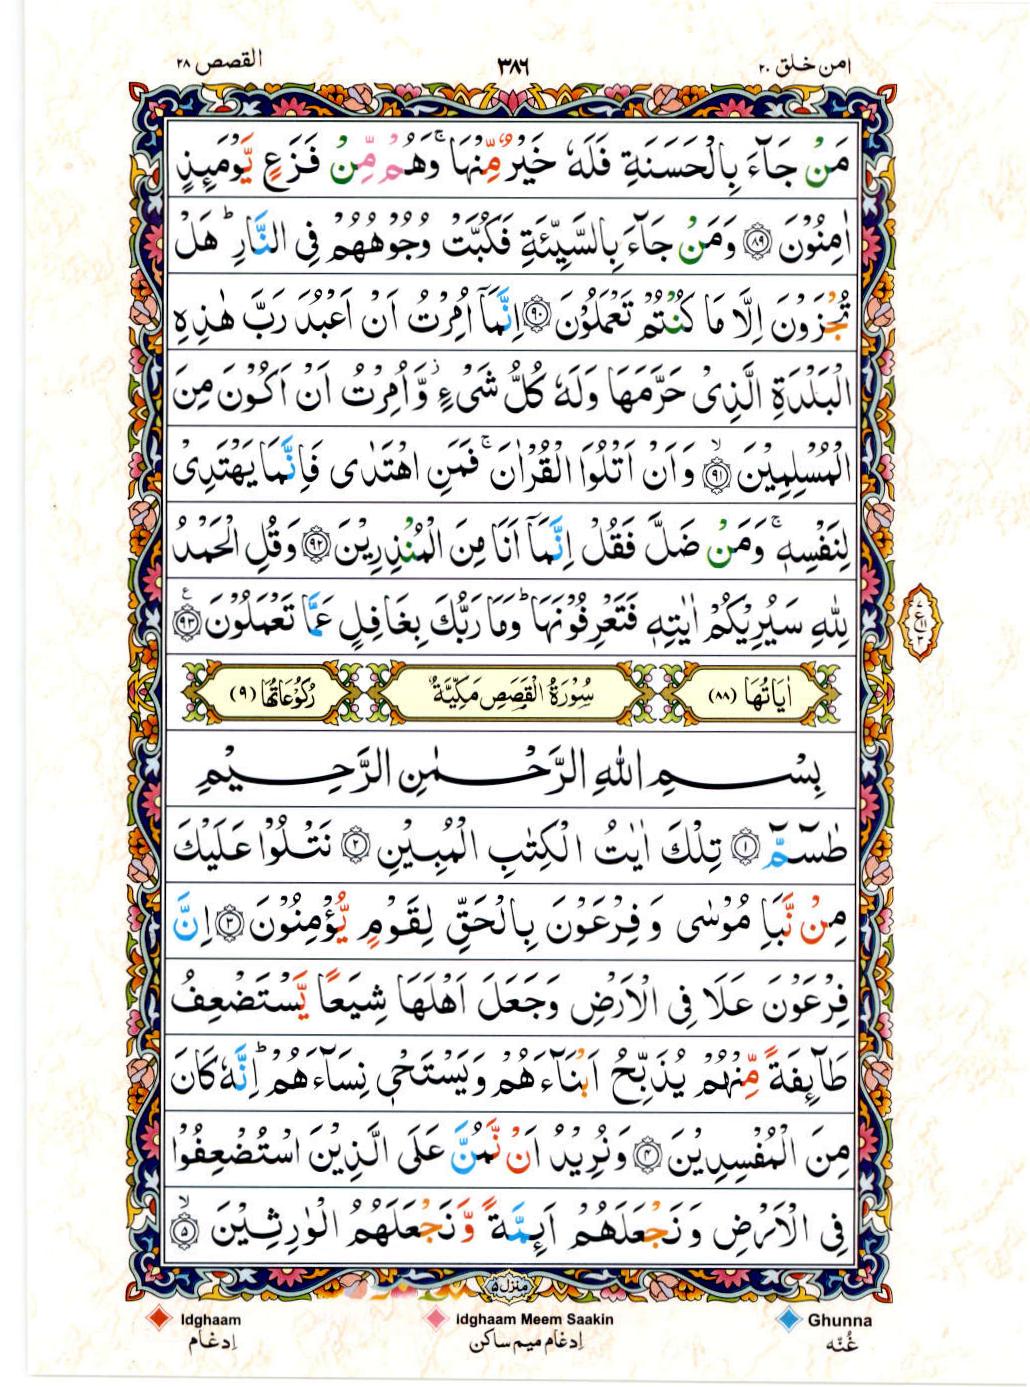 امن خلق ٢٠ ٣٨٦ القصص ٢٨
مَنْ جَآءَ بِالْحَسَنَةِ فَلَهٗ خَيْرٌ مِّنْهَا ۚ وَهُمْ مِّنْ فَزَعٍ يَّوْمَئِذٍ
اٰمِنُوْنَ ﴿٨٩﴾ وَمَنْ جَآءَ بِالسَّيِّئَةِ فَكُبَّتْ وُجُوْهُهُمْ فِى النَّارِ ؕ هَلْ
تُجْزَوْنَ اِلَّا مَا كُنْتُمْ تَعْمَلُوْنَ ﴿٩٠﴾ اِنَّمَآ اُمِرْتُ اَنْ اَعْبُدَ رَبَّ هٰذِهِ
الْبَلْدَةِ الَّذِىْ حَرَّمَهَا وَلَهٗ كُلُّ شَىْءٍ ۫ وَّاُمِرْتُ اَنْ اَكُوْنَ مِنَ
الْمُسْلِمِيْنَ ﴿٩١﴾ ۙ وَاَنْ اَتْلُوَا الْقُرْاٰنَ ۚ فَمَنِ اهْتَدٰى فَاِنَّمَا يَهْتَدِىْ
لِنَفْسِهٖ ۚ وَمَنْ ضَلَّ فَقُلْ اِنَّمَآ اَنَا مِنَ الْمُنْذِرِيْنَ ﴿٩٢﴾ وَقُلِ الْحَمْدُ
لِلّٰهِ سَيُرِيْكُمْ اٰيٰتِهٖ فَتَعْرِفُوْنَهَا ؕ وَمَا رَبُّكَ بِغَافِلٍ عَمَّا تَعْمَلُوْنَ ﴿٩٣﴾ ع
اٰيَاتُهَا (٨٨) سُوْرَةُ الْقَصَصِ مَكِّيَّةٌ رُكُوْعَاتُهَا (٩)
بِسْمِ اللّٰهِ الرَّحْمٰنِ الرَّحِيْمِ
طٰسٓمّٓ ﴿١﴾ تِلْكَ اٰيٰتُ الْكِتٰبِ الْمُبِيْنِ ﴿٢﴾ نَتْلُوْا عَلَيْكَ
مِنْ نَّبَاِ مُوْسٰى وَفِرْعَوْنَ بِالْحَقِّ لِقَوْمٍ يُّؤْمِنُوْنَ ﴿٣﴾ اِنَّ
فِرْعَوْنَ عَلَا فِى الْاَرْضِ وَجَعَلَ اَهْلَهَا شِيَعًا يَّسْتَضْعِفُ
طَآئِفَةً مِّنْهُمْ يُذَبِّحُ اَبْنَآءَهُمْ وَيَسْتَحْىٖ نِسَآءَهُمْ ؕ اِنَّهٗ كَانَ
مِنَ الْمُفْسِدِيْنَ ﴿٤﴾ وَنُرِيْدُ اَنْ نَّمُنَّ عَلَى الَّذِيْنَ اسْتُضْعِفُوْا
فِى الْاَرْضِ وَنَجْعَلَهُمْ اَئِمَّةً وَّنَجْعَلَهُمُ الْوٰرِثِيْنَ ﴿٥﴾ ۙ
منزل ٥
Idghaam idghaam Meem Saakin Ghunna
غُنّه اِدغام ميم ساكن اِدغام